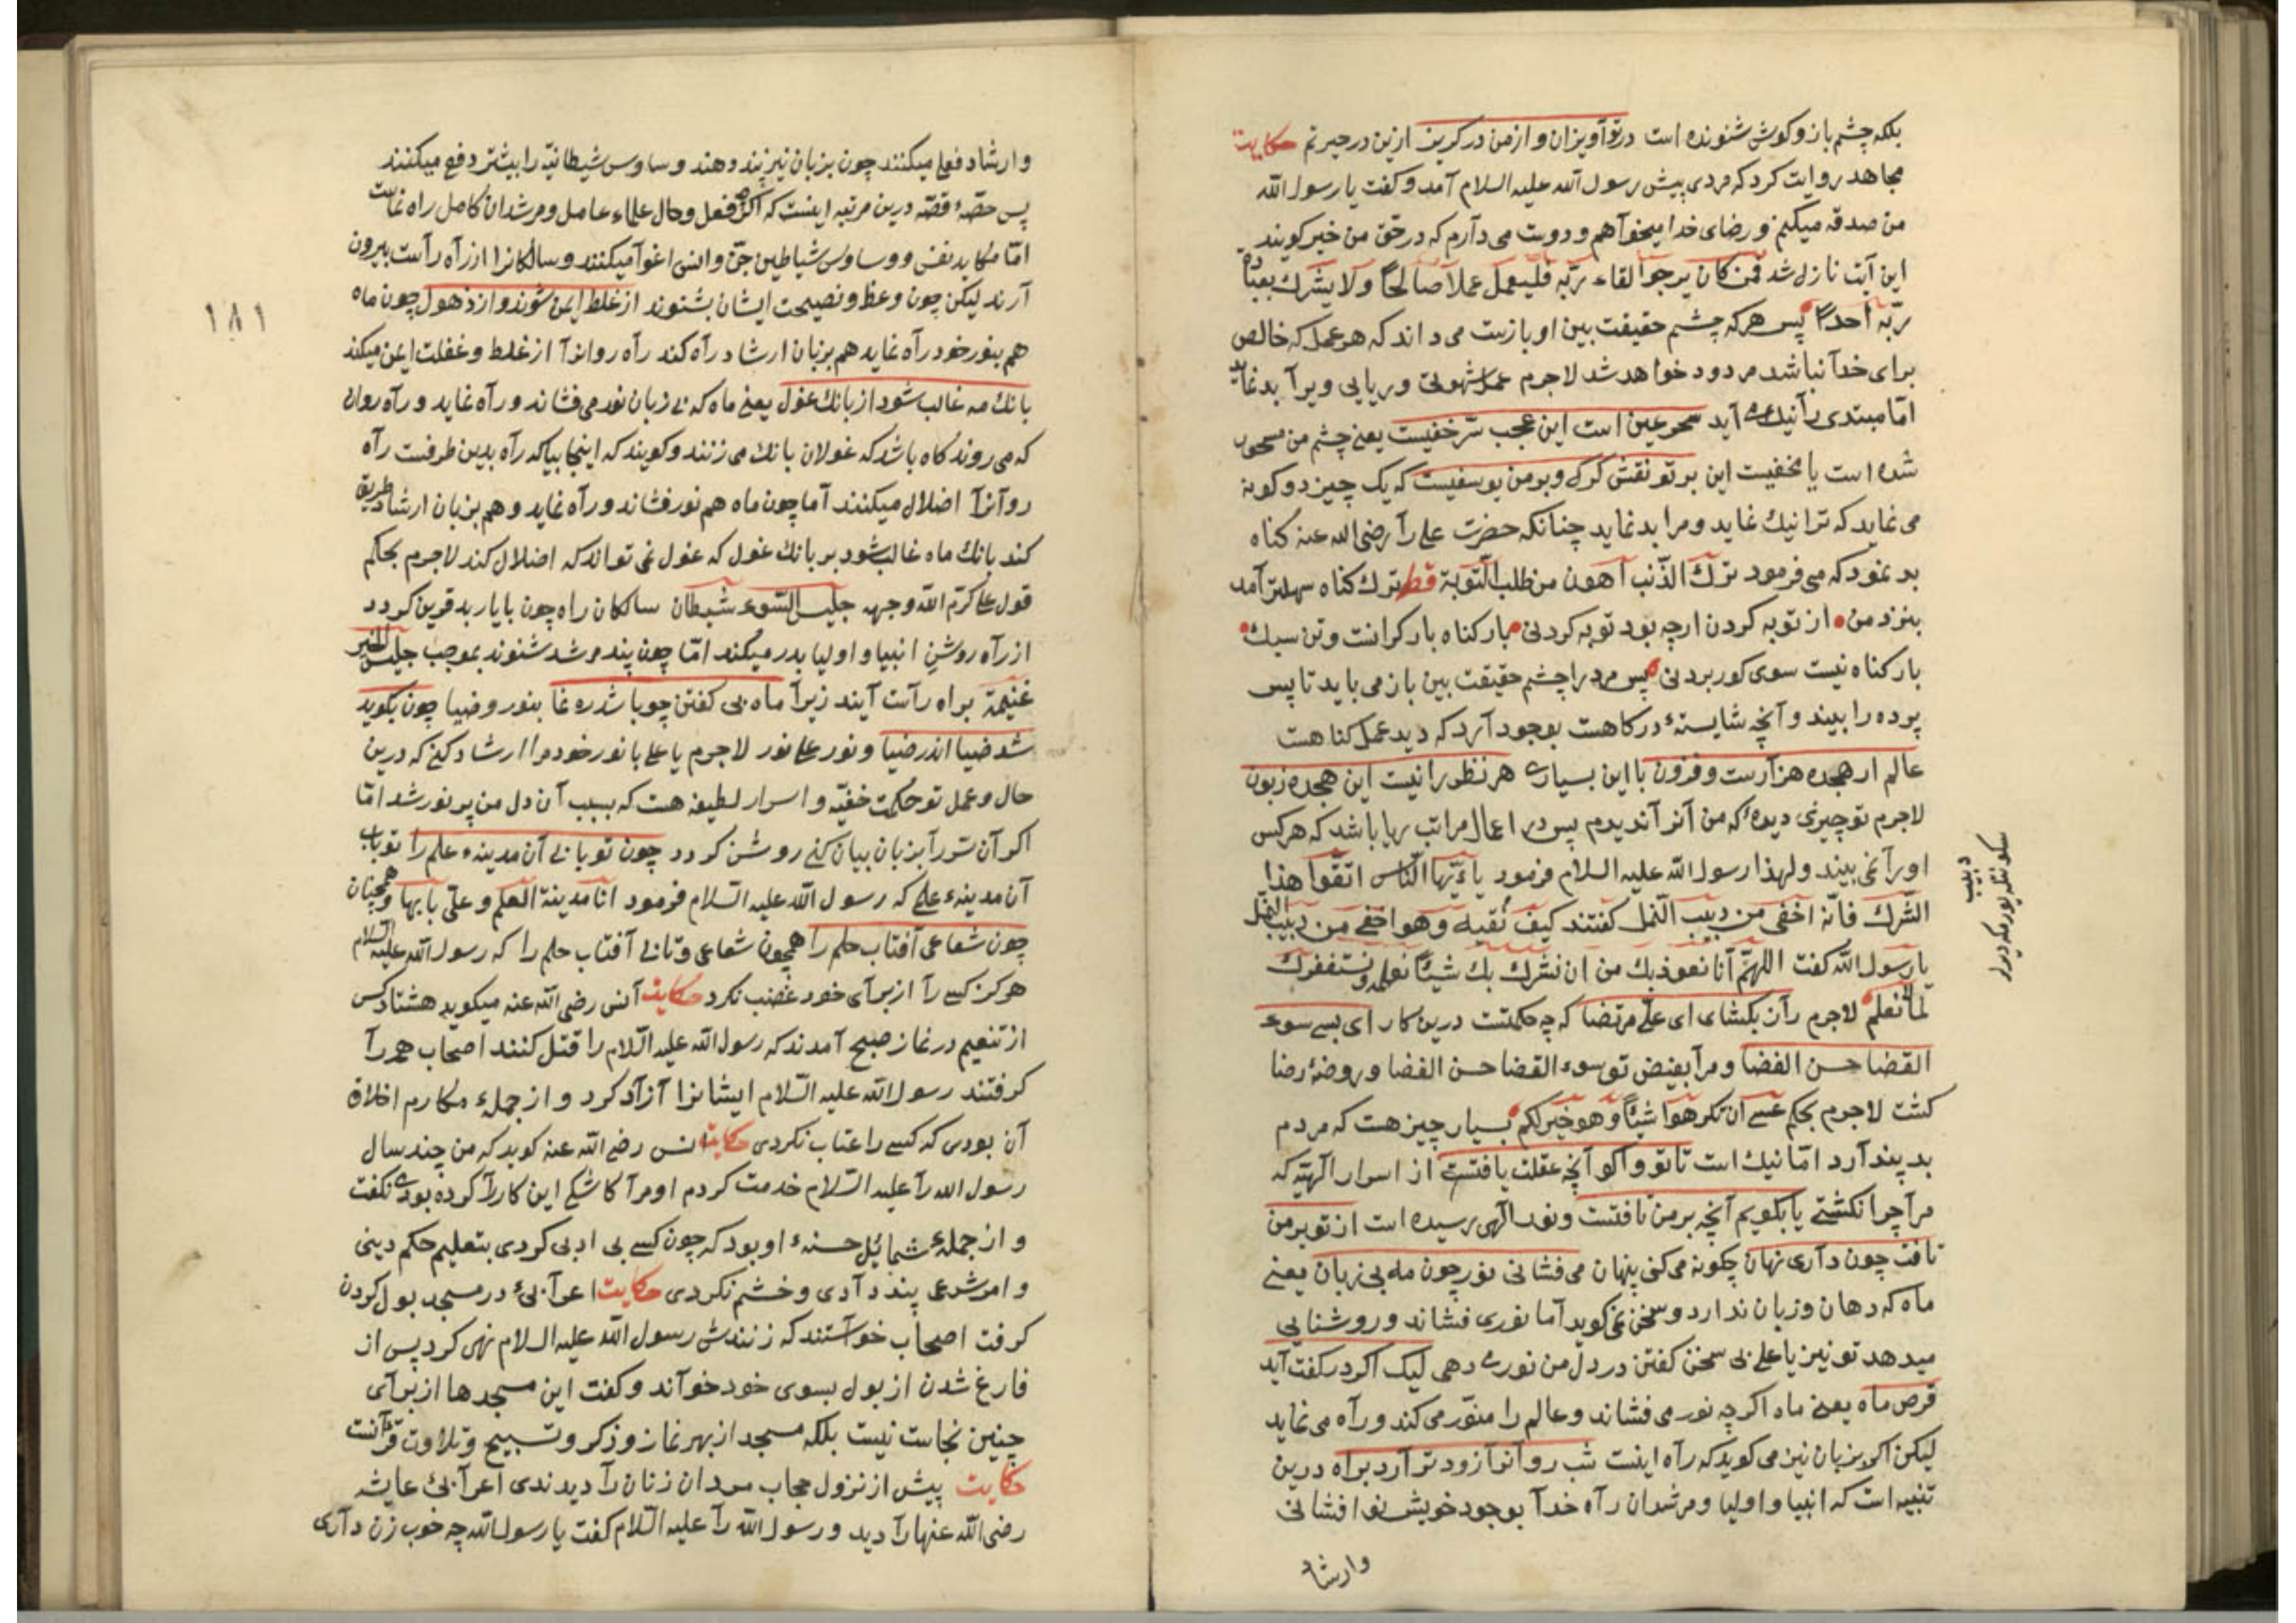 بلکه چشم باز و کوش شنونده است در تو آویزان و از من در کریز ازین در حیرتم حکایت
مجاهد روایت کرد که مردی پیش رسول الله علیه السلام آمد و کفت یا رسول الله
من صدقه میکنم و رضای خدا میخواهم و دوست می دارم که در حق من خیر کویند
این آیت نازل شد فمن کان یرجوا لقاء ربّه فلیعمل عملا صالحًا ولا یشرك بعبادة
ربّه احدًا پس هر که چشم حقیقت بین او بازست می داند که هر عمل که خالص
برای خدا نباشد مردود خواهد شد لاجرم عمل شهوتی و ریایی ویرا بد نماید
امّا مبتدی را نیک آید سحر عین است این عجب سرّ خفیست یعنی چشم من مسحور
شده است یا مخفیست این بر تو نقش کرك و بر من یوسفیست که یک چیز دو کونه
می نماید که ترا نیك نماید و مرا بد نماید چنانکه حضرت علی را رضی الله عنه کناه
بد نمود که می فرمود ترك الذّنب اهون من طلب التّوبة قطر ترك کناه سهلتر آمد
بنزد من از توبه کردن ارچه بود توبه کردنی بار کناه بار کرانست و تن سبك
بار کناه نیست سوی کور بردنی پس مرد را چشم حقیقت بین باز می باید تا پس
پرده را بیند و آنچه شایستهٔ درکاهست بوجود آرد که دید عمل کناهست
عالم ار هجده هزارست و فزون با این بسیاری هر نظر را نیست این هجده زبون
لاجرم تو چیزی دیدهٔ که من آنرا ندیدم پس در اعمال مراتب ریا باشد که هر کس
اورا نمی بیند ولهذا رسول الله علیه السلام فرمود یا ءیّها النّاس اتّقوا هذا
الشّرك فانّه اخفی من دبیب النّمل کفتند کیف نتّقیه وهو اخفی من دبیب النمل
یا رسول الله کفت اللهمّ انّا نعوذ بك من ان نشرك بك شیئًا نعلمه ونستغفرك
لما لا نعلم لاجرم راز بکشای ای علیّ مرتضا که چه حکمتست درین کار ای پس سوء
القضا حسن القضا و مرا بفیض تو سوء القضا حسن القضا و روضهٔ رضا
کشت لاجرم بحکم عسی ان تکرهوا شیئًا وهو خیر لکم بسیار چیز هست که مردم
بد پندارد امّا نیك است تا تو واکو آنچه عقلت یافتست از اسرار الهیّه که
مرا چرا نکشتی یا بکویم آنچه بر من تافتست و نور الهی رسیده است از تو بر من
تافت چون داری نهان چکونه می کنی پنهان می فشانی نور چون مه بی زبان یعنی
ماه که دهان و زبان ندارد و سخن نمی کوید اما نوری فشاند و روشنایی
میدهد تو نیز یا علی بی سخن کفتن در دل من نور می دهی لیك اکر در کفت آید
قرص ماه یعنی ماه اکرچه نور می فشاند و عالم را منوّر می کند و راه می نماید
لیکن اکر بزبان نیز می کوید که راه اینست شب روانرا زودتر آرد براه درین
تنبیه است که انبیا و اولیا و مرشدان راه خدا بوجود خویش نور افشانی
وارشاد
دبیب
وارشاد فعلی میکنند چون بزبان نیز پند دهند وساوس شیطانیّه را بیشتر دفع میکنند
پس حصّهٔ قصّه درین مرتبه اینست که اکرچه فعل و حال علماء عامل و مرشدان کامل راه نماست
امّا مکاید نفس و وساوس شیاطین جنّ و انس اغوا میکنند و سالکانرا از راه راست بیرون
آرند لیکن چون وعظ و نصیحت ایشان بشنوند از غلط ایمن شوند و از ذهول چون ماه
هم بنور خود راه نماید هم بزبان ارشاد راه کند راه روانرا از غلط و غفلت ایمن میکند
بانك مه غالب شود از بانك غول یعنی ماه که بی زبان نور می فشاند و راه نماید و راه روان
که می روند کاه باشد که غولان بانك می زنند و کویند که اینجا بیا که راه بدین طرفست راه
روانرا اضلال میکنند اما چون ماه هم نور فشاند و راه نماید و هم بزبان ارشاد طریق
کند بانك ماه غالب شود بر بانك غول که غول نمی تواند که اضلال کند لاجرم بحکم
قول علی کرّم الله وجهه جلیس السّوء شیطان سالکان راه چون با یار بد قرین کردد
از راه روشن انبیا و اولیا بدر میکند امّا چون پند مرشد شنوند بموجب جلیس الخیر
غنیمة براه راست آیند زیرا ماه بی کفتن چو باشد ره نما بنور و ضیا چون بکوید
شد ضیا اندر ضیا و نور علی نور لاجرم یا علی با نور خود مرا ارشاد کنی که درین
حال و عمل تو حکمت خفیّه و اسرار لطیفه هست که بسبب آن دل من پر نور شد امّا
اکر آن سرّرا بزبان بیان کنی روشن کردد چون تو بابی آن مدینهٔ علم را تو باب
آن مدینهء علمی که رسول الله علیه السّلام فرمود انا مدینة العلم وعلیّ بابها و همچنان
چون شعاعی آفتاب حلم را همچون شعاعی و تابی آفتاب حلم را که رسول الله علیه السلام
هرکز کسی را از برای خود غضب نکرد حکایت انس رضی الله عنه میکوید هشتاد کس
از تنعیم در نماز صبح آمدند که رسول الله علیه السّلام را قتل کنند اصحاب همه را
کرفتند رسول الله علیه السّلام ایشانرا آزاد کرد و از جملهء مکارم اخلاق
آن بودی که کسی را عتاب نکردی حکایت انس رضی الله عنه کوید که من چند سال
رسول الله را علیه السّلام خدمت کردم او مرا کاشکی این کار را کرده بودی نکفت
و از جملهء شمائل حسنهء او بود که چون کسی بی ادبی کردی بتعلیم حکم دینی
و امر شرعی پند دادی و خشم نکردی حکایت اعرابیٔ در مسجد بول کردن
کرفت اصحاب خواستند که زنندش رسول الله علیه السلام نهی کرد پس از
فارغ شدن از بول بسوی خود خواند و کفت این مسجدها از برای
چنین نجاست نیست بلکه مسجد از بهر نماز و ذکر و تسبیح و تلاوت قرآنست
حکایت پیش از نزول حجاب مردان زنان را دیدندی اعرابیٔ عایشه
رضی الله عنها را دید و رسول الله را علیه السّلام کفت یا رسول الله چه خوب زن داری
١٨١